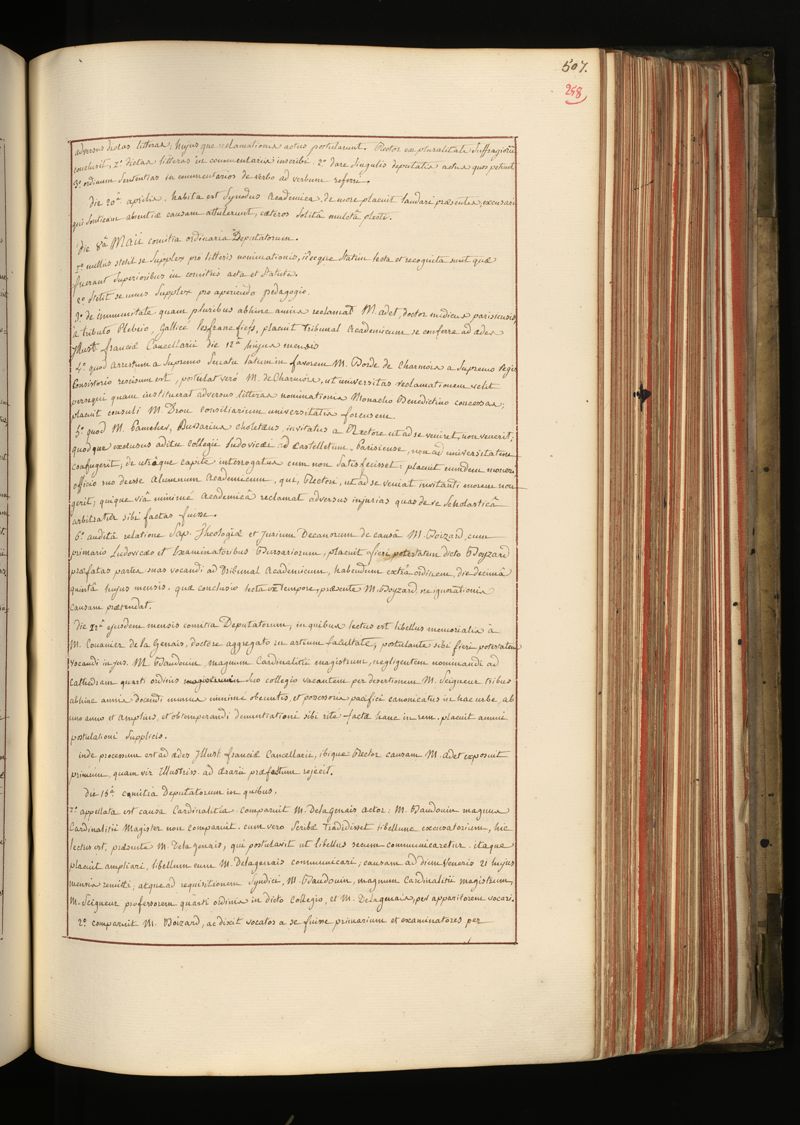 507.
258
adversus dictas litteras, hujusque reclamationis actus postularunt. Rector ex pluralitate suffragiorum
conclusit, 1º dictas litteras in commentariis inscribi. 2º dare singulis deputatis actus quos petunt
3º ordinum sententias in commentarios de verbo ad verbum referri.
die 20ª aprilis. habita est synodus Academica, de more placuit laudari præsentes, excusari
qui sonticam absentiæ causam attulerunt, cæteros solitâ mulctâ plecti.
die 8ª Maii comitia ordinaria Deputatorum.
1º nullus stetit se supplex pro litteris nominationis, ibique statim lecta et recognita sunt quæ
fuerant superioribus in comitiis acta et statuta.
2º stetit se unus supplex pro aperiendo pedagogio.
3º de immunitate quam pluribus abhinc annis reclamat M. adet, doctor medicus parisiensis
à tributo Plebeio, Gallicè les francs fiefs, placuit Tribunal Academicum se conferre ad ædes
Illust. franciæ Cancellarii die 12ª hujus mensis
4º quod Arrestum a supremo senatu latum in favorem M. Borde de Charmois a supremo Regis
Consistorio rescisum est, postulat verò M. de Charmois, ut universitas reclamationem velit
persequi quam instituerat adversus litteras nominationis Monacho Benedictino concessas;
placuit consuli M. Drou consiliarium universitatis forensem.
5º quod M. Gameher, Bursarius choletæus, invitatus a Rectore ut ad se veniret, non venerit;
quod que exclusus aditu collegii Ludovicæi ad castelletum Parisiense, non ad universitatem
confugerit; de utrâque capite interrogatus cum non satisfecisset: placuit eumdem moneri
officio suo deesse Alumnum Academicum, qui, Rectori, ut ad se veniat invitanti morem non
gerit; quique viâ minimè Academicâ reclamat adversus injurias quas de se scholasticâ
arbitratur sibi factas fuisse.
6º auditâ relatione Sap. Theologiæ et Jurium Decanorum de causâ M. Boizard, cum
primario Ludovicæo et Examinatoribus Bursariorum, placuit fieri potestatem dicto Boyzard
præfatas partes suas vocandi ad Tribunal Academicum, habendum extrà ordinem, die decimâ
quintâ hujus mensis. quæ conclusio lecta ex tempore, præsente M. Boyzard ne ignorationis
causam prætendat.
die 12ª ejusdem mensis comitia Deputatorum, in quibus lectus est libellus memorialis à
M. Couanier de la Genais, doctore aggregato in artium facultate, postulante sibi fieri potestatem
vocandi in jus M. Baudouin magnum Cardinalitii magistrum, negligentem nominandi ad
Cathedram quarti ordinis suo collegio vacantem per desertionem M. Seigneur tribus
abhinc annis docendi munus minimè obeuntis, et possessoris pacifici canonicatus in hac urbe, ab
uno anno et ampliùs, et obtemperandi denuntiationi sibi ritè factæ hanc in rem. placuit annui
postulationi supplicis.
inde processum est ad ædes Illust franciæ Cancellarii, ibique Rector causam M. adet exposuit
primùm, quam vir Illustriss. ad ærarii præfectum rejecit.
die 15ª comitia Deputatorum in quibus.
1º appellata est causa Cardinalitia. comparuit M. Delagenais actor: M. Baudouin magnus
Cardinalitii Magister non comparuit. cum vero scribæ tradidisset libellum excusatorium, hic
lectus est, præsente M. Delagenais, qui postulavit ut libellus secum communicaretur. itaque
placuit ampliari, libellum eum M. Delagenais communicari; causam ad diem Veneris 21 hujus
mensis remitti, atque ad requisitionem syndici, M. Baudouin, magnum Cardinalitii magistrum,
M. Seigneur professorem quarti ordinis in dicto Collegio, et M. Delagenais, per apparitorem vocari.
2º comparuit M. Boizard, ac dixit vocatos a se fuisse primarium et examinatores per